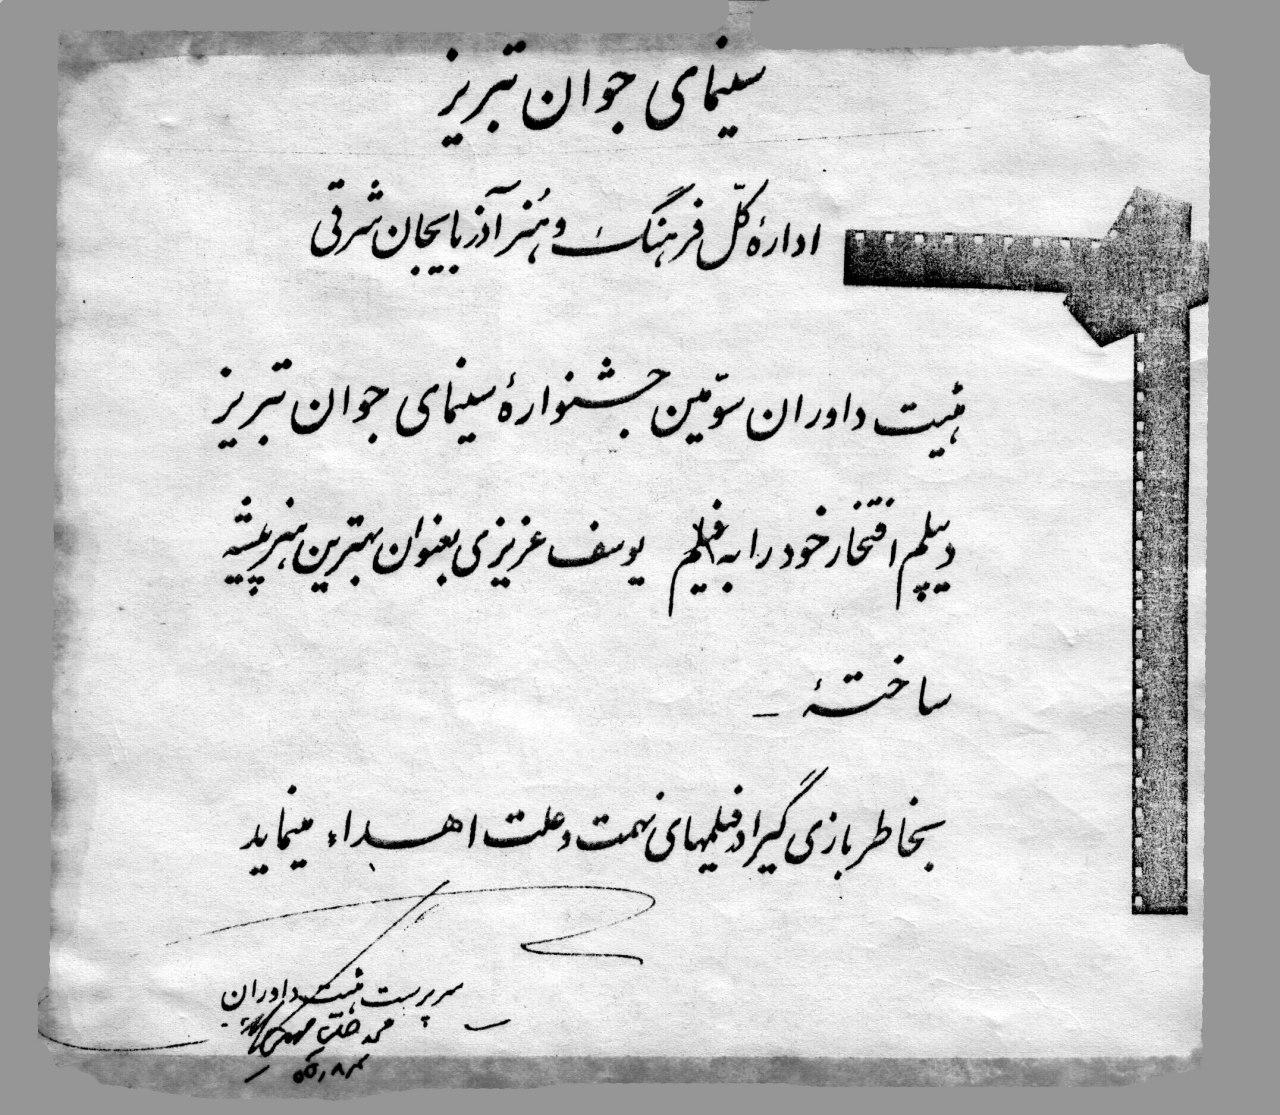 سینمای جوان تبریز
ادارهٔ کلّ فرهنگ و هُنر آذربایجان شرقی
هئیت داوران سوّمین جشنوارهٔ سینمای جوان تبریز
دیپلم افتخار خود را به فیلم یوسف عزیزی بعنوان بهترین هنرپیشه
ساختهٔ _
بخاطر بازی گیرا در فیلمهای نهمت و علت اهداء مینماید
سرپرست هئیت داوران
محمد